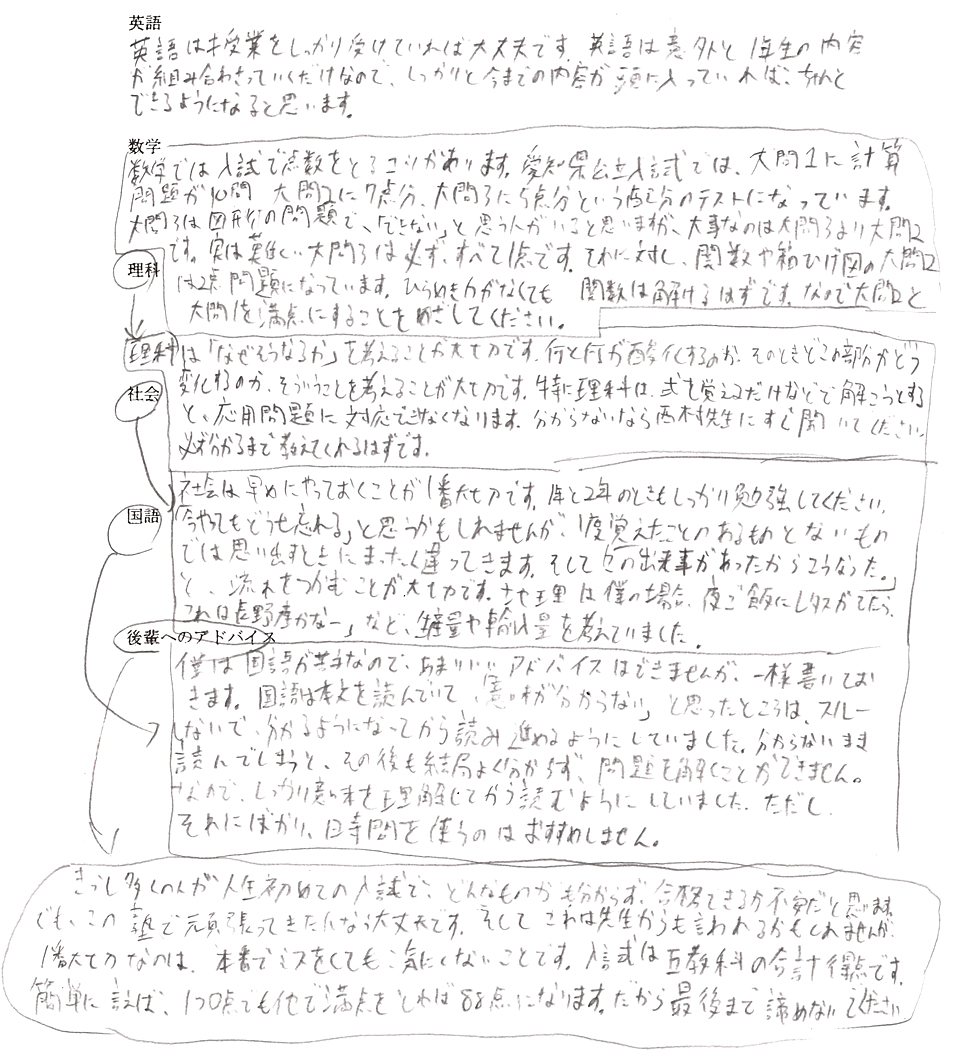 英語
英語は授業をしっかり受けていれば大丈夫です。英語は意外と1年生の内容
が組み合わさっていくだけなので、しっかりと今までの内容が頭に入っていれば、ちゃんと
できるようになると思います。
数学
数学では入試で点数をとるコツがあります。愛知県公立入試では、大問1に計算
問題が10問 大問2に7点分、大問3に5点分という配分のテストになっています。
大問3は図形の問題で、「できない」と思う人がいると思いますが、大事なのは大問3より大問2
です。実は難しい大問3は必ず、すべて1点です。それに対し、関数や箱ひげ図の大問2
は2点問題になっています。ひらめき力がなくても 関数は解けるはずです。なので大問2と
大問1を満点にすることをめざしてください。
理科
理科は「なぜそうなるか」を考えることが大切です。何と何が酸化するのか、そのときどこの部分がどう
変化するのか、そういうことを考えることが大切です。特に理科は、式を覚えるだけなどで解こうとする
と、応用問題に対応できなくなります。分からないなら西村先生にすぐ聞いてください。
必ず分かるまで教えてくれるはずです。
社会
社会は早めにやっておくことが1番大切です。1年と2年のときもしっかり勉強してください。
「今やってもどうせ忘れる」と思うかもしれませんが、1度覚えたことのあるものとないもの
では思い出すときにまったく違ってきます。そして「この出来事があったからこうなった。」
と、流れをつかむことが大切です。地理は僕の場合、夜ご飯にレタスがでたら、
「これは長野産かなー」など、生産量や輸入量を考えていました。
国語
後輩へのアドバイス
僕は国語が苦手なので、あまりいいアドバイスはできませんが、一様書いてお
きます。国語は本文を読んでいて、「意味が分からない」と思ったところは、スルー
しないで、分かるようになってから読み進めるようにしていました。分からないまま
読んでしまうと、その後も結局よく分からず、問題を解くことができません。
なので、しっかり意味を理解してから読むようにしていました。ただし、
それにばかり、時間を使うのはおすすめしません。
きっと多くの人が人生初めての入試で、どんなものかも分からず、合格できるか不安だと思います。
でも、この塾で頑張ってきた人なら大丈夫です。そしてこれは先生からも言われるかもしれませんが、
1番大切なのは、本番でミスをしても気にしないことです。入試は五教科の合計得点です。
簡単に言えば、1つ0点でも他で満点をとれば88点になります。だから最後まで諦めないでください